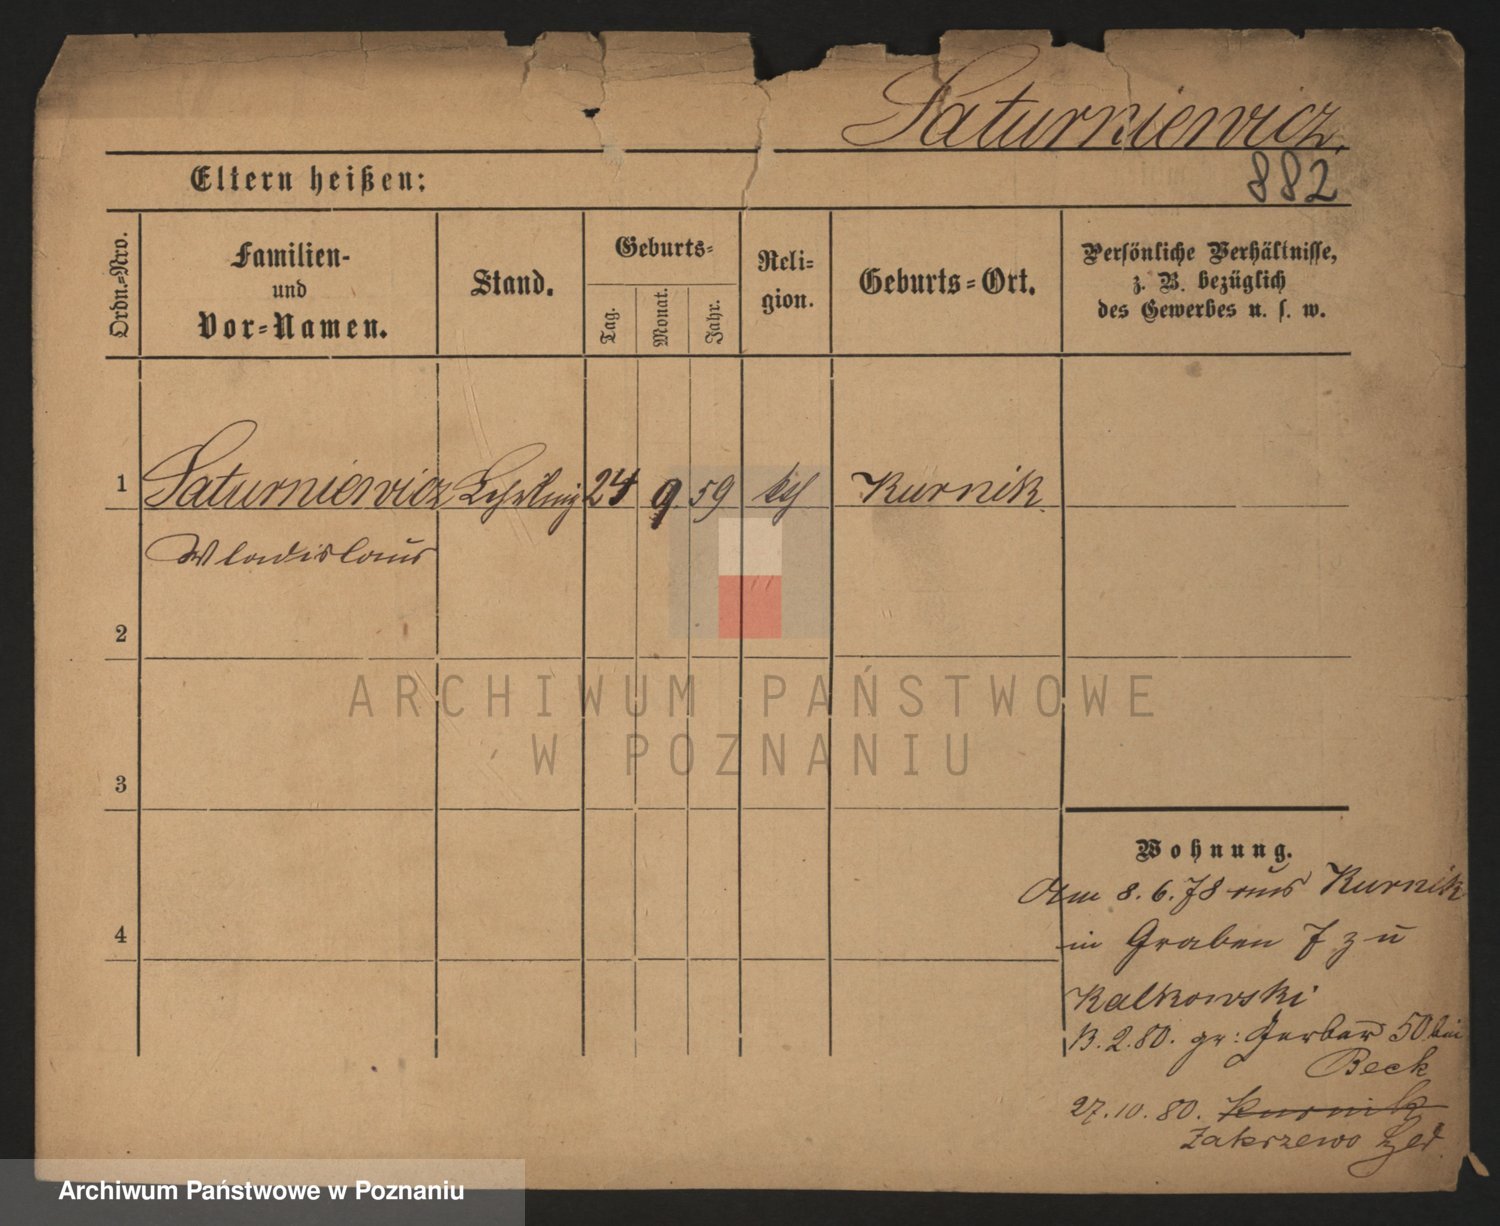 Saturniewicz.
Eltern heißen:
882
Ordn.-Nro.
Familien-
und
Vor-Namen.
Stand.
Geburts-
Tag.
Monat.
Jahr.
Reli-
gion.
Geburts-Ort.
Persönliche Verhältnisse,
z. B. bezüglich
des Gewerbes u. s. w.
1 Saturniewicz Lehrling 24 9. 59 kth Kurnik.
Wladislaus
2
3
4
Wohnung.
Am 8.6.78 aus Kurnik
in Graben 7 zu
Kalkowski
13.2.80. gr: Gerber 50 bei
Beck
27.10.80. Kurnik
Zakrzewo
ARCHIWUM PAŃSTWOWE
W POZNANIU
Archiwum Państwowe w Poznaniu